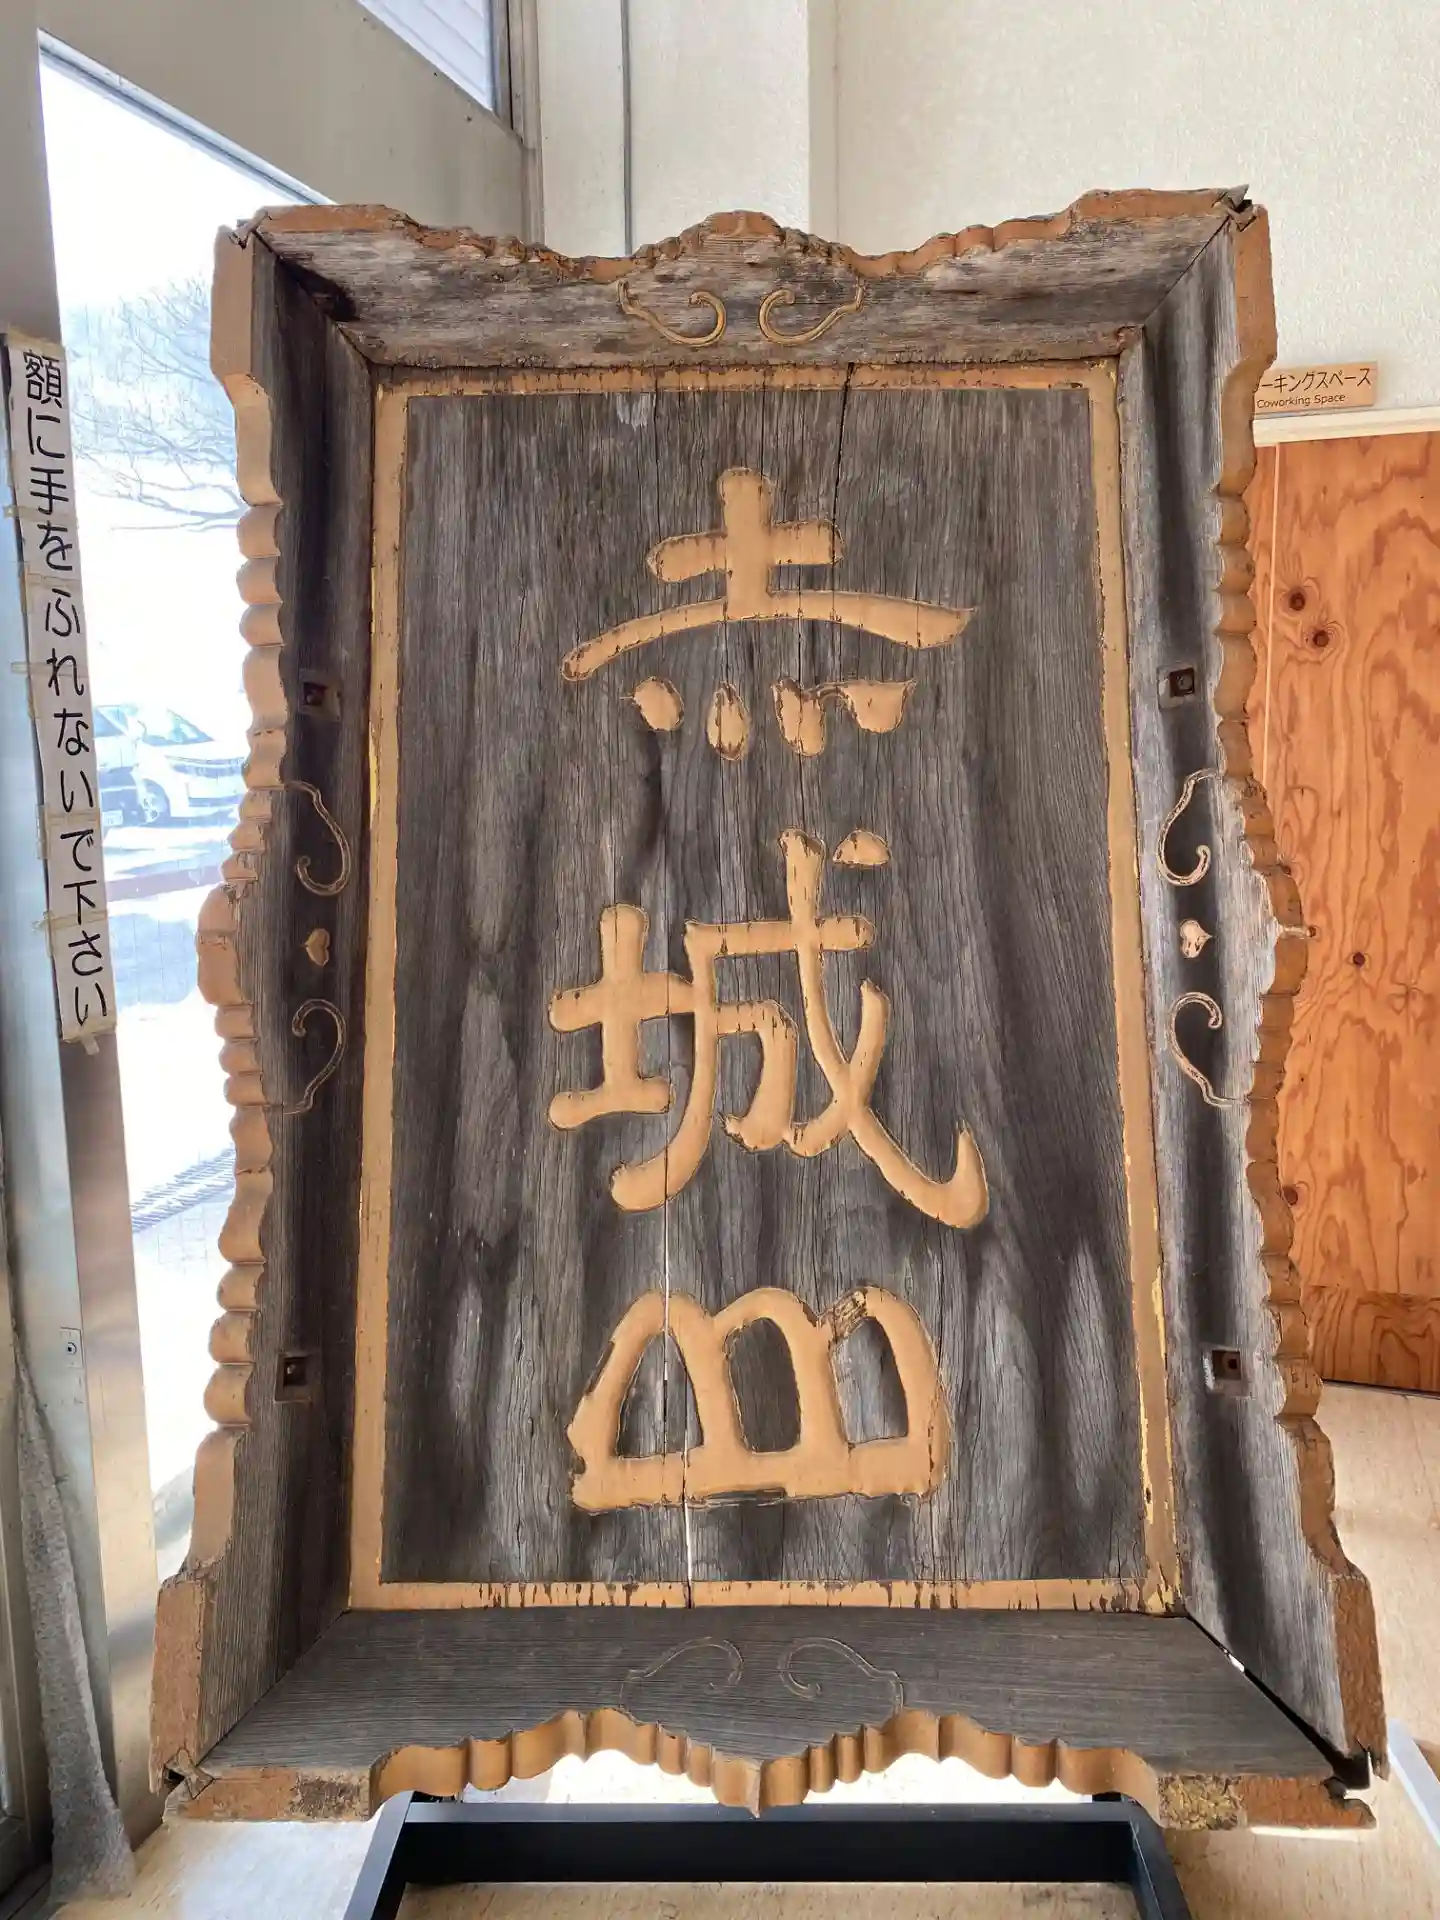 額に手をふれないで下さい
赤城山
ーキングスペース
Coworking Space